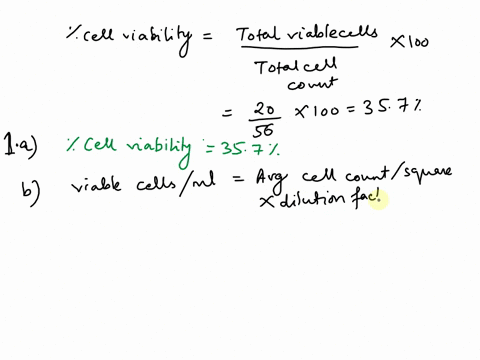 % cell viability = Total viable cells / Total cell count × 100
= 20/56 × 100 = 35.7 %
1.a) % Cell viability = 35.7 %
b) viable cells/ml = Avg cell count/square
× dilution fact